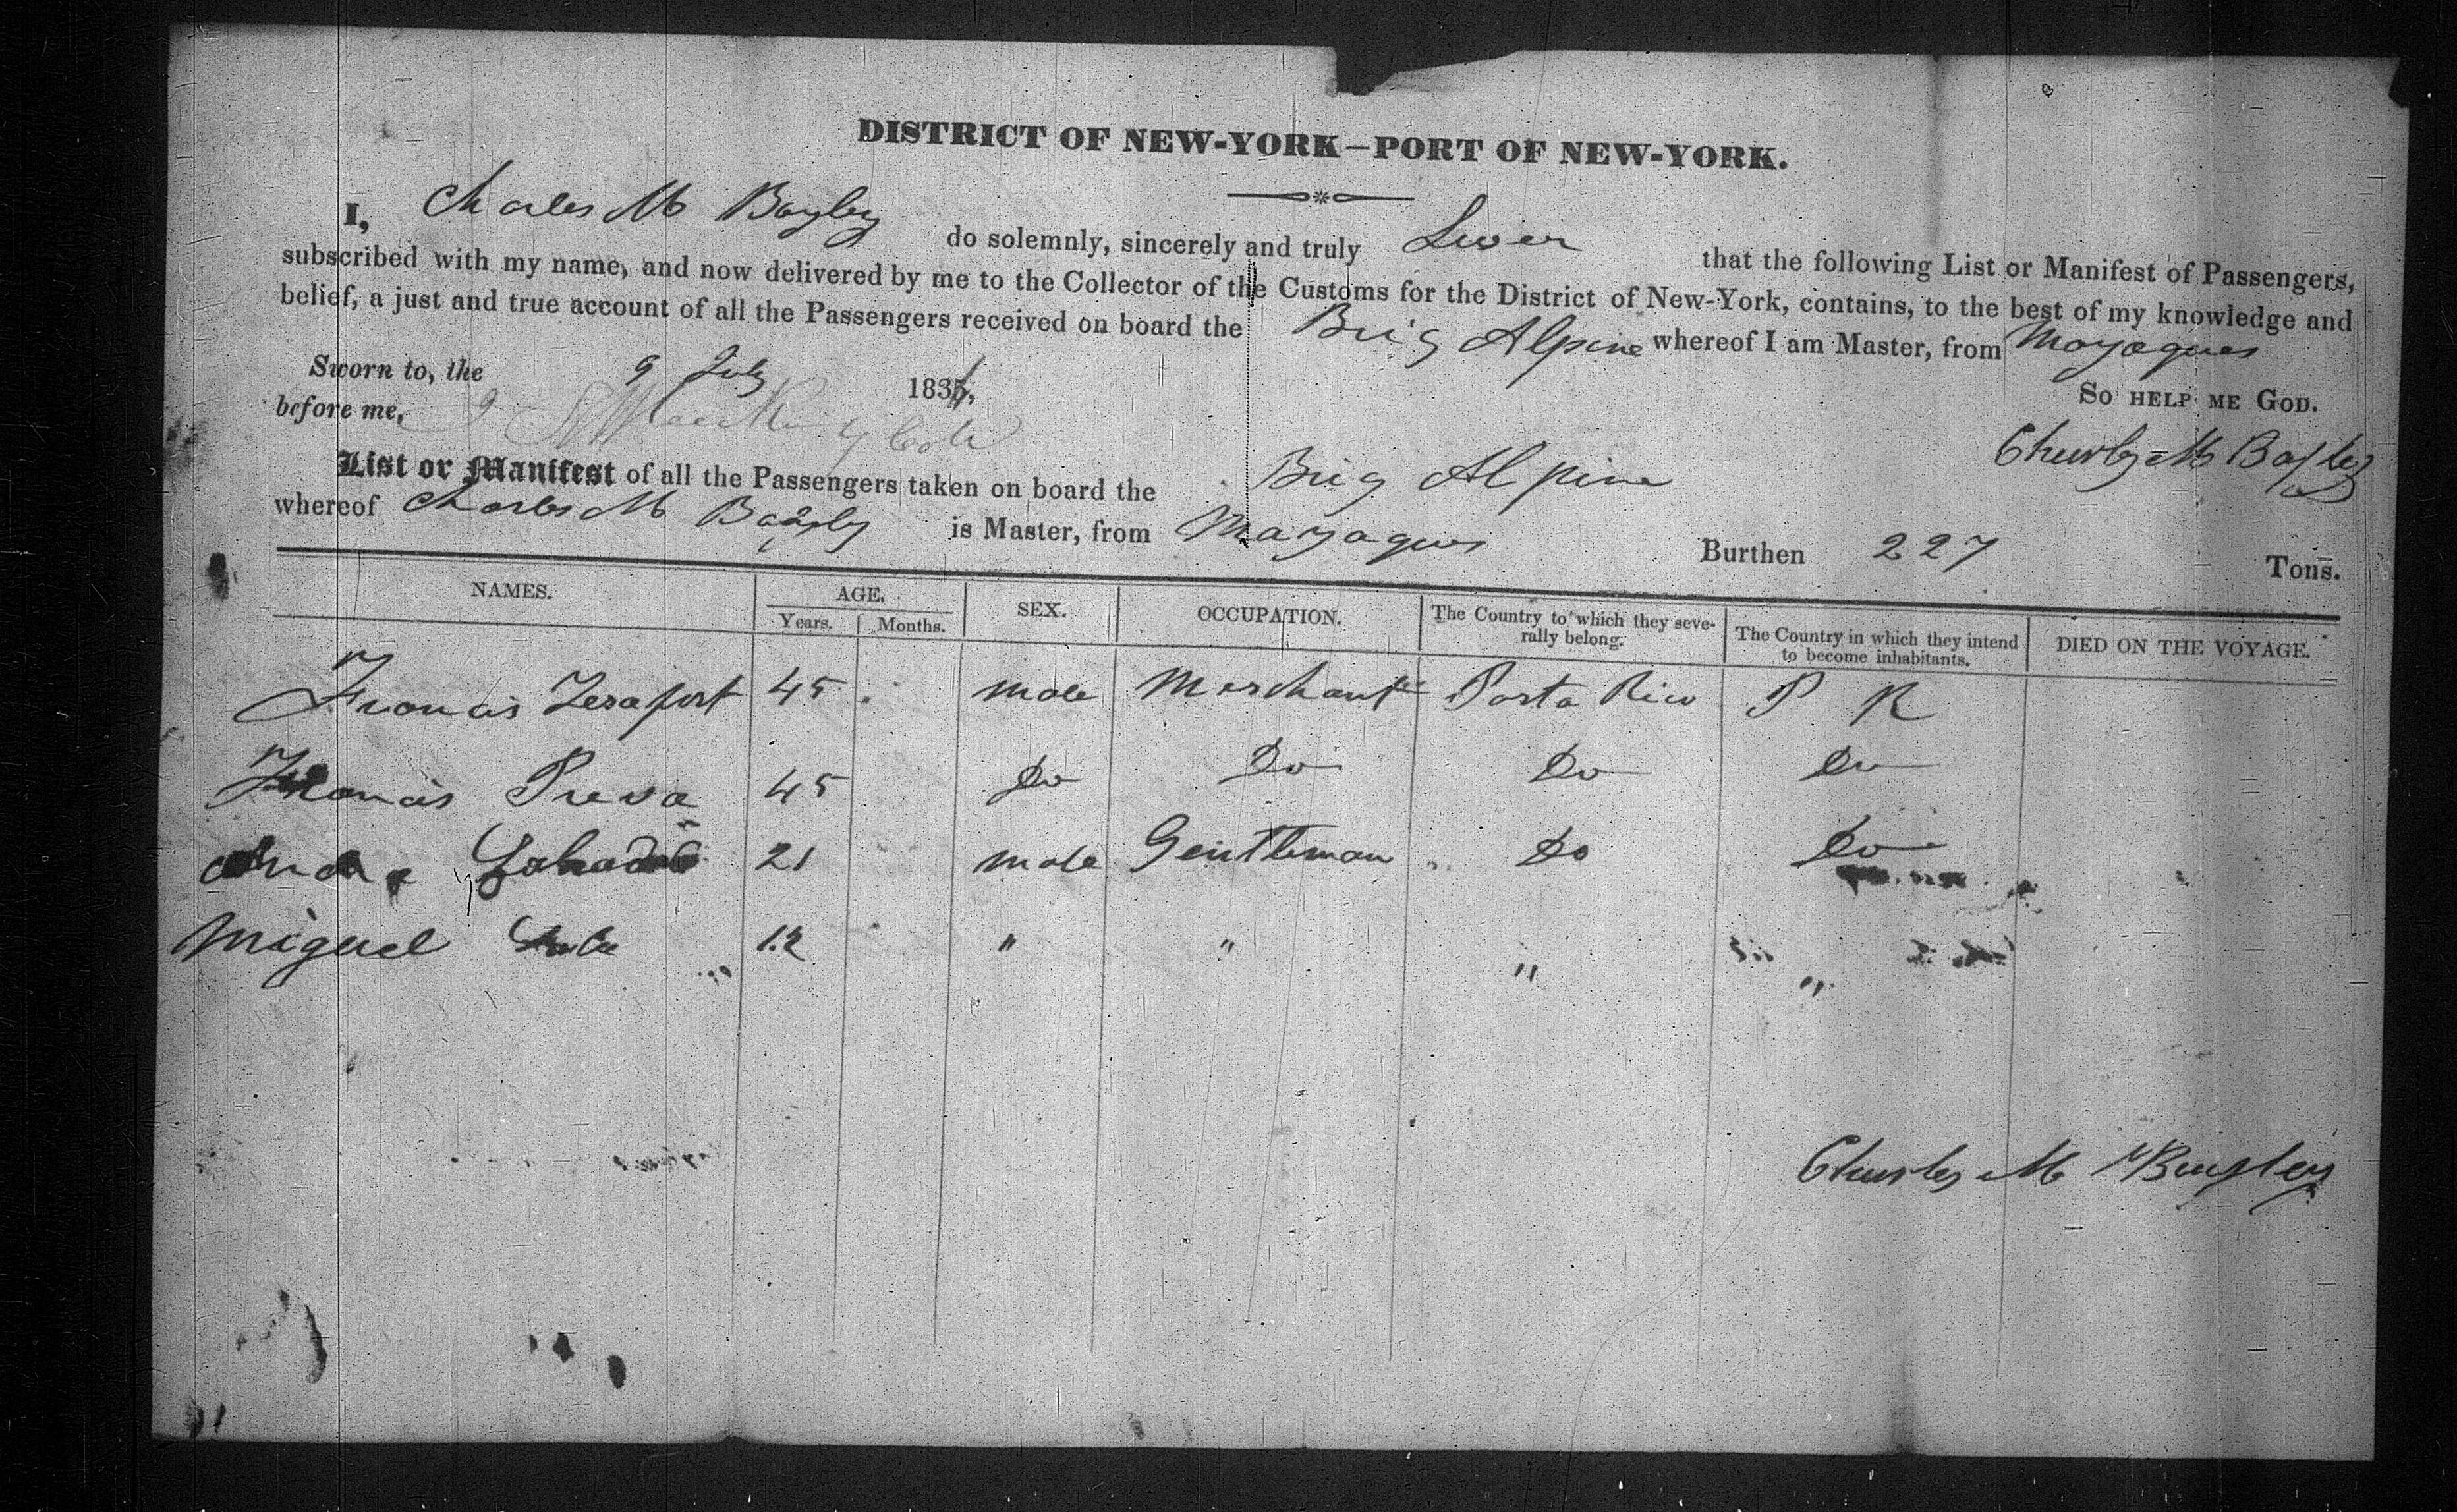 DISTRICT OF NEW-YORK—PORT OF NEW-YORK.
I, Charles M Bayley do solemnly, sincerely and truly Swear that the following List or Manifest of Passengers,
subscribed with my name, and now delivered by me to the Collector of the Customs for the District of New-York, contains, to the best of my knowledge and
belief, a just and true account of all the Passengers received on board the Brig Alpine whereof I am Master, from Mayagues
Sworn to, the 9 July 183
So HELP ME GOD.
before me,
Charles M Bayley
List or Manifest of all the Passengers taken on board the Brig Alpine
whereof Charles M Bayley is Master, from Mayagues Burthen 227 Tons.
NAMES. AGE. SEX. OCCUPATION. The Country to which they seve-
rally belong. The Country in which they intend
to become inhabitants. DIED ON THE VOYAGE.
Years. Months.
Francis 45 male Merchant Porto Rico P R
Francis 45 Do Do Do Do
21 male Gentleman Do Do
Miguel 12 " " " "
Charles M Bayley